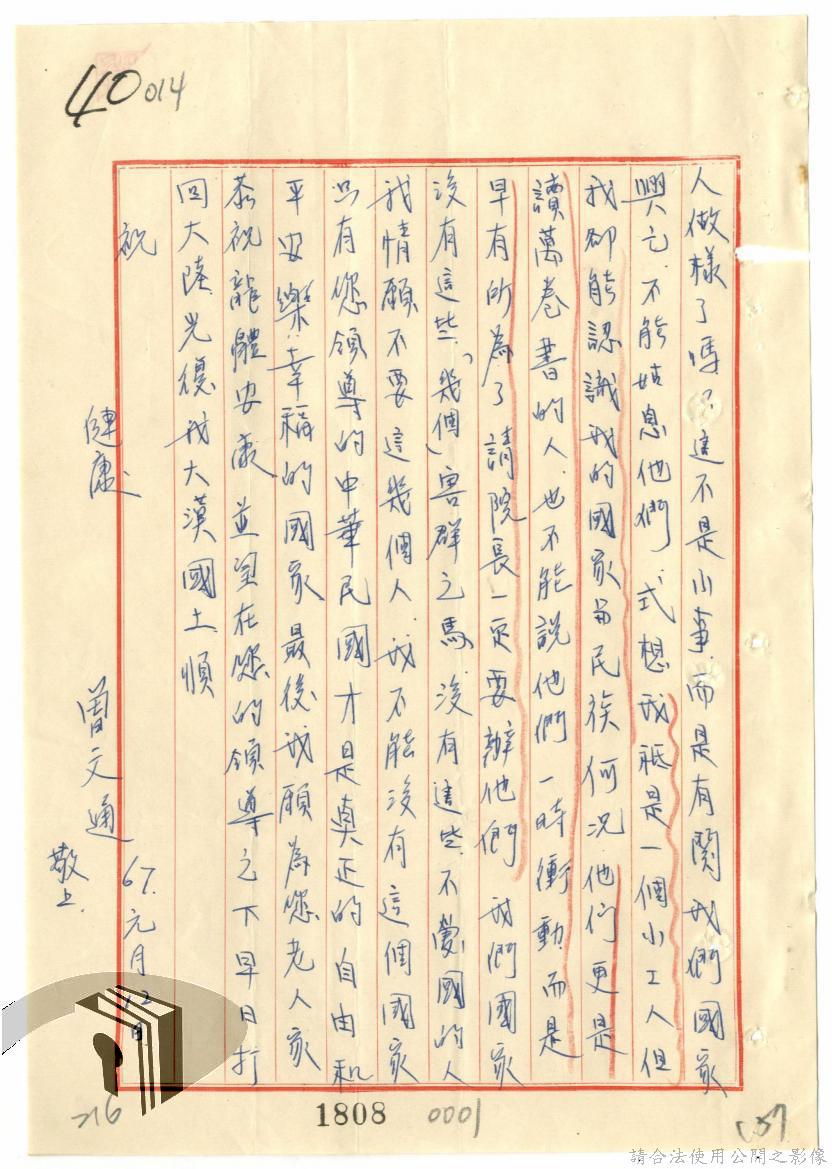 40 014
人做樣了嗎?這不是小事,而是有關我們國家
興亡.不能姑息他們,式想我祗是一個小工人但
我卻能認識我的國家與民族何況.他们更是
讀萬卷書的人.也不能說他們一時衝動而是
早有所為了請院長一定要辦他們 我們國家
沒有這些「幾個」害群之馬,沒有這些.不愛國的人
我情願不要這幾個人.我不能沒有這個國家
只有您領導的中華民國才是真正的自由和
平安樂.幸福的國家最後我願為您老人家
恭祝龍體安康.並望在您的領導之下早日打
回大陸.光復我大漢國土.順
祝
健康.
曾文通
敬上.
67.元月12日
216
1808
0001
57
請合法使用公開之影像